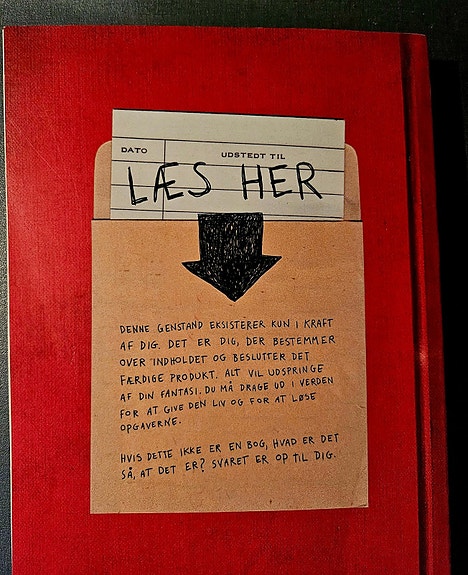 DATO UDSTEDT TIL
LÆS HER
DENNE GENSTAND EKSISTERER KUN I KRAFT
AF DIG. DET ER DIG, DER BESTEMMER
OVER INDHOLDET OG BESLUTTER DET
FÆRDIGE PRODUKT. ALT VIL UDSPRINGE
AF DIN FANTASI. DU MÅ DRAGE UD I VERDEN
FOR AT GIVE DEN LIV OG FOR AT LØSE
OPGAVERNE.
HVIS DETTE IKKE ER EN BOG, HVAD ER DET
SÅ, AT DET ER? SVARET ER OP TIL DIG.